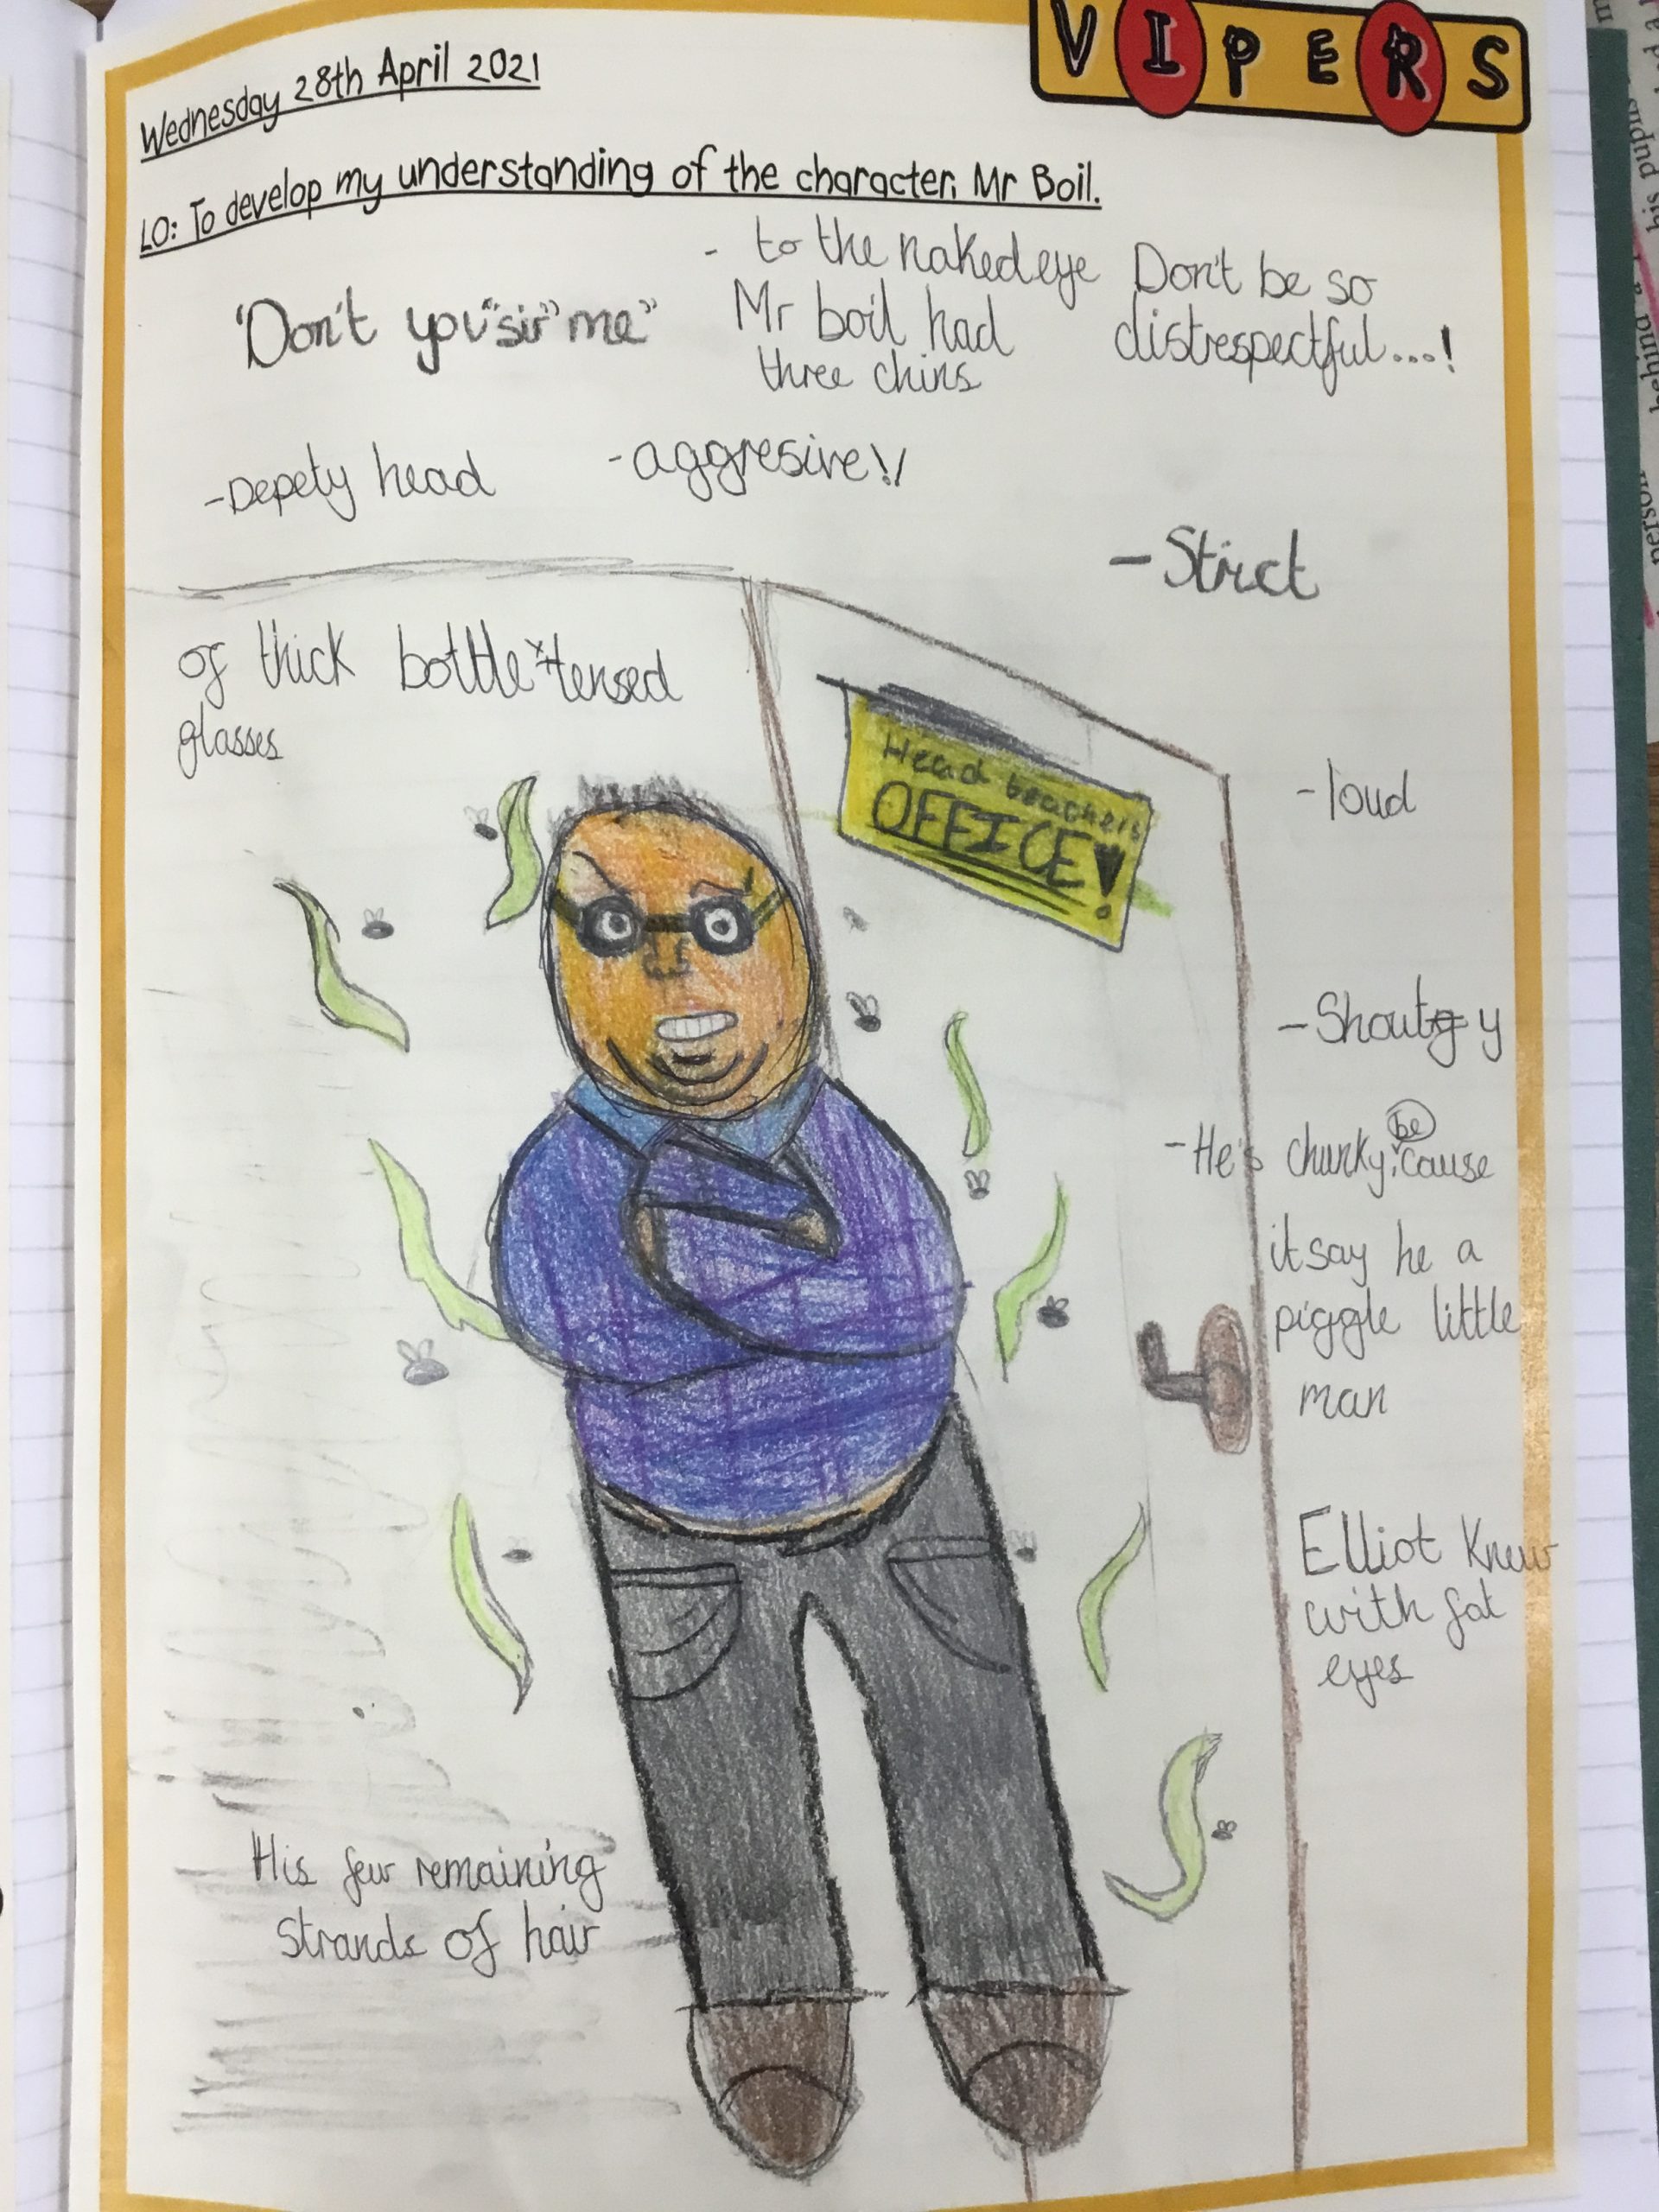 VIPERS
Wednesday 28th April 2021
LO: To develop my understanding of the character, Mr Boil.
"Don't you "sir" me"
- to the naked eye
Mr boil had
three chins
Don't be so
distrespectful...!
-Depety head
-aggresive!!
-Strict
of thick bottle tensed
glasses
Head teachers
OFFICE!
-loud
-Shouty
-He's chunky, because
it say he a
piggle little
man
Elliot Knew
with fat
eyes
His few remaining
strands of hair